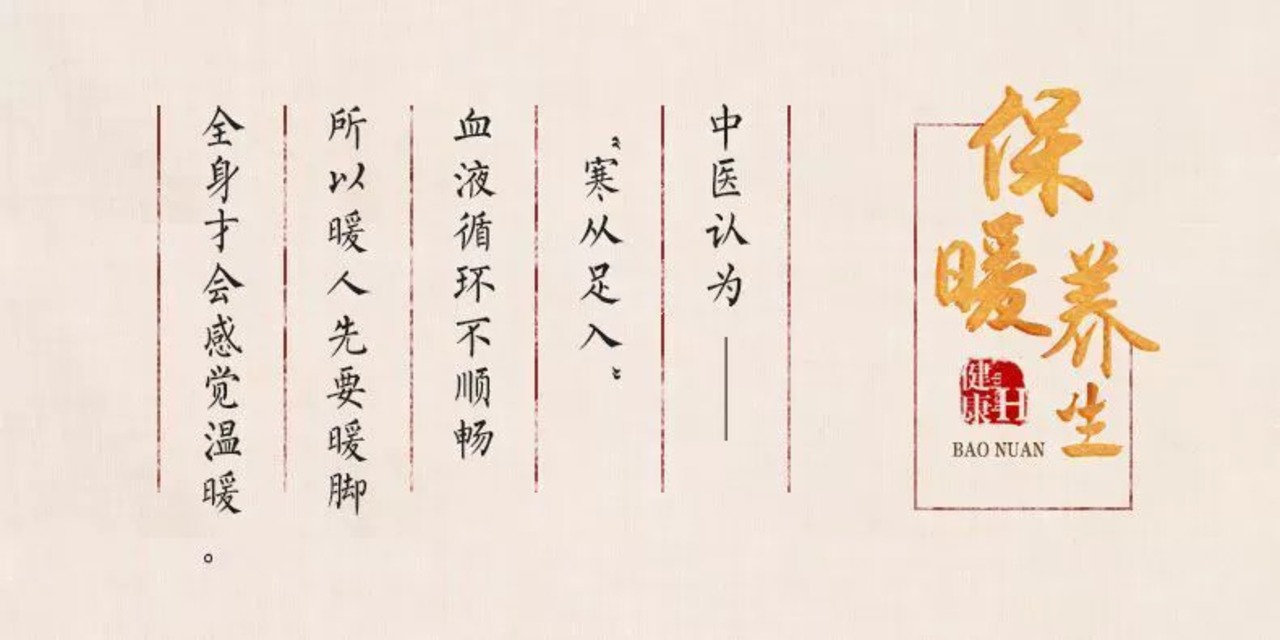 保暖养生
健康H
BAO NUAN
中医认为——
“寒从足入”
血液循环不顺畅
所以暖人先要暖脚
全身才会感觉温暖。